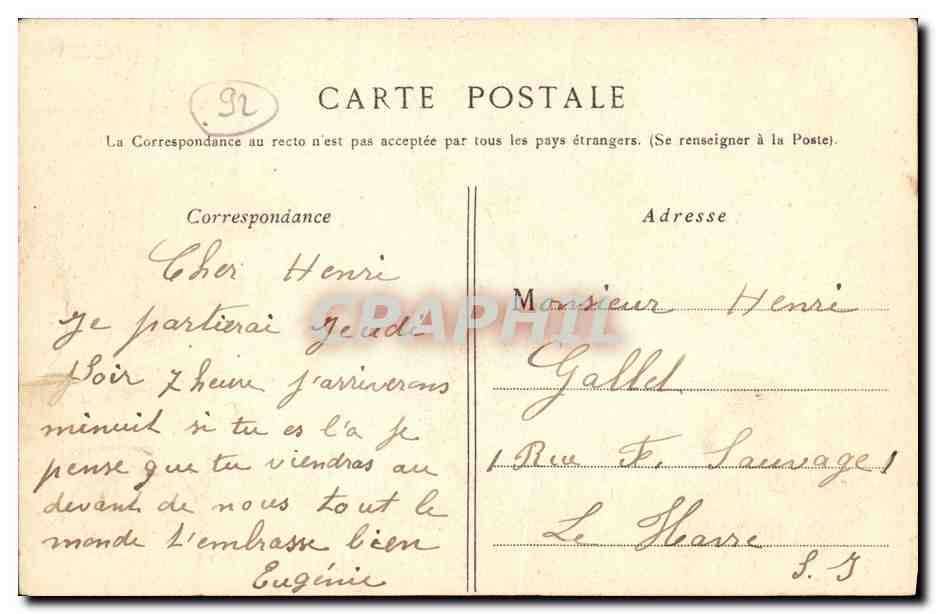 92
CARTE POSTALE
La Correspondance au recto n'est pas acceptée par tous les pays étrangers. (Se renseigner à la Poste).
Correspondance
Cher Henri
Je partirai Jeudi
soir 7 heure j'arriverons
minuit si tu es l'a je
pense que tu viendras au
devant de nous tout le
monde t'embrasse bien
Eugénie
Adresse
Monsieur Henri
Gallet
1 Rue F. Sauvage 1
Le Havre
S. I
CPAPHIL